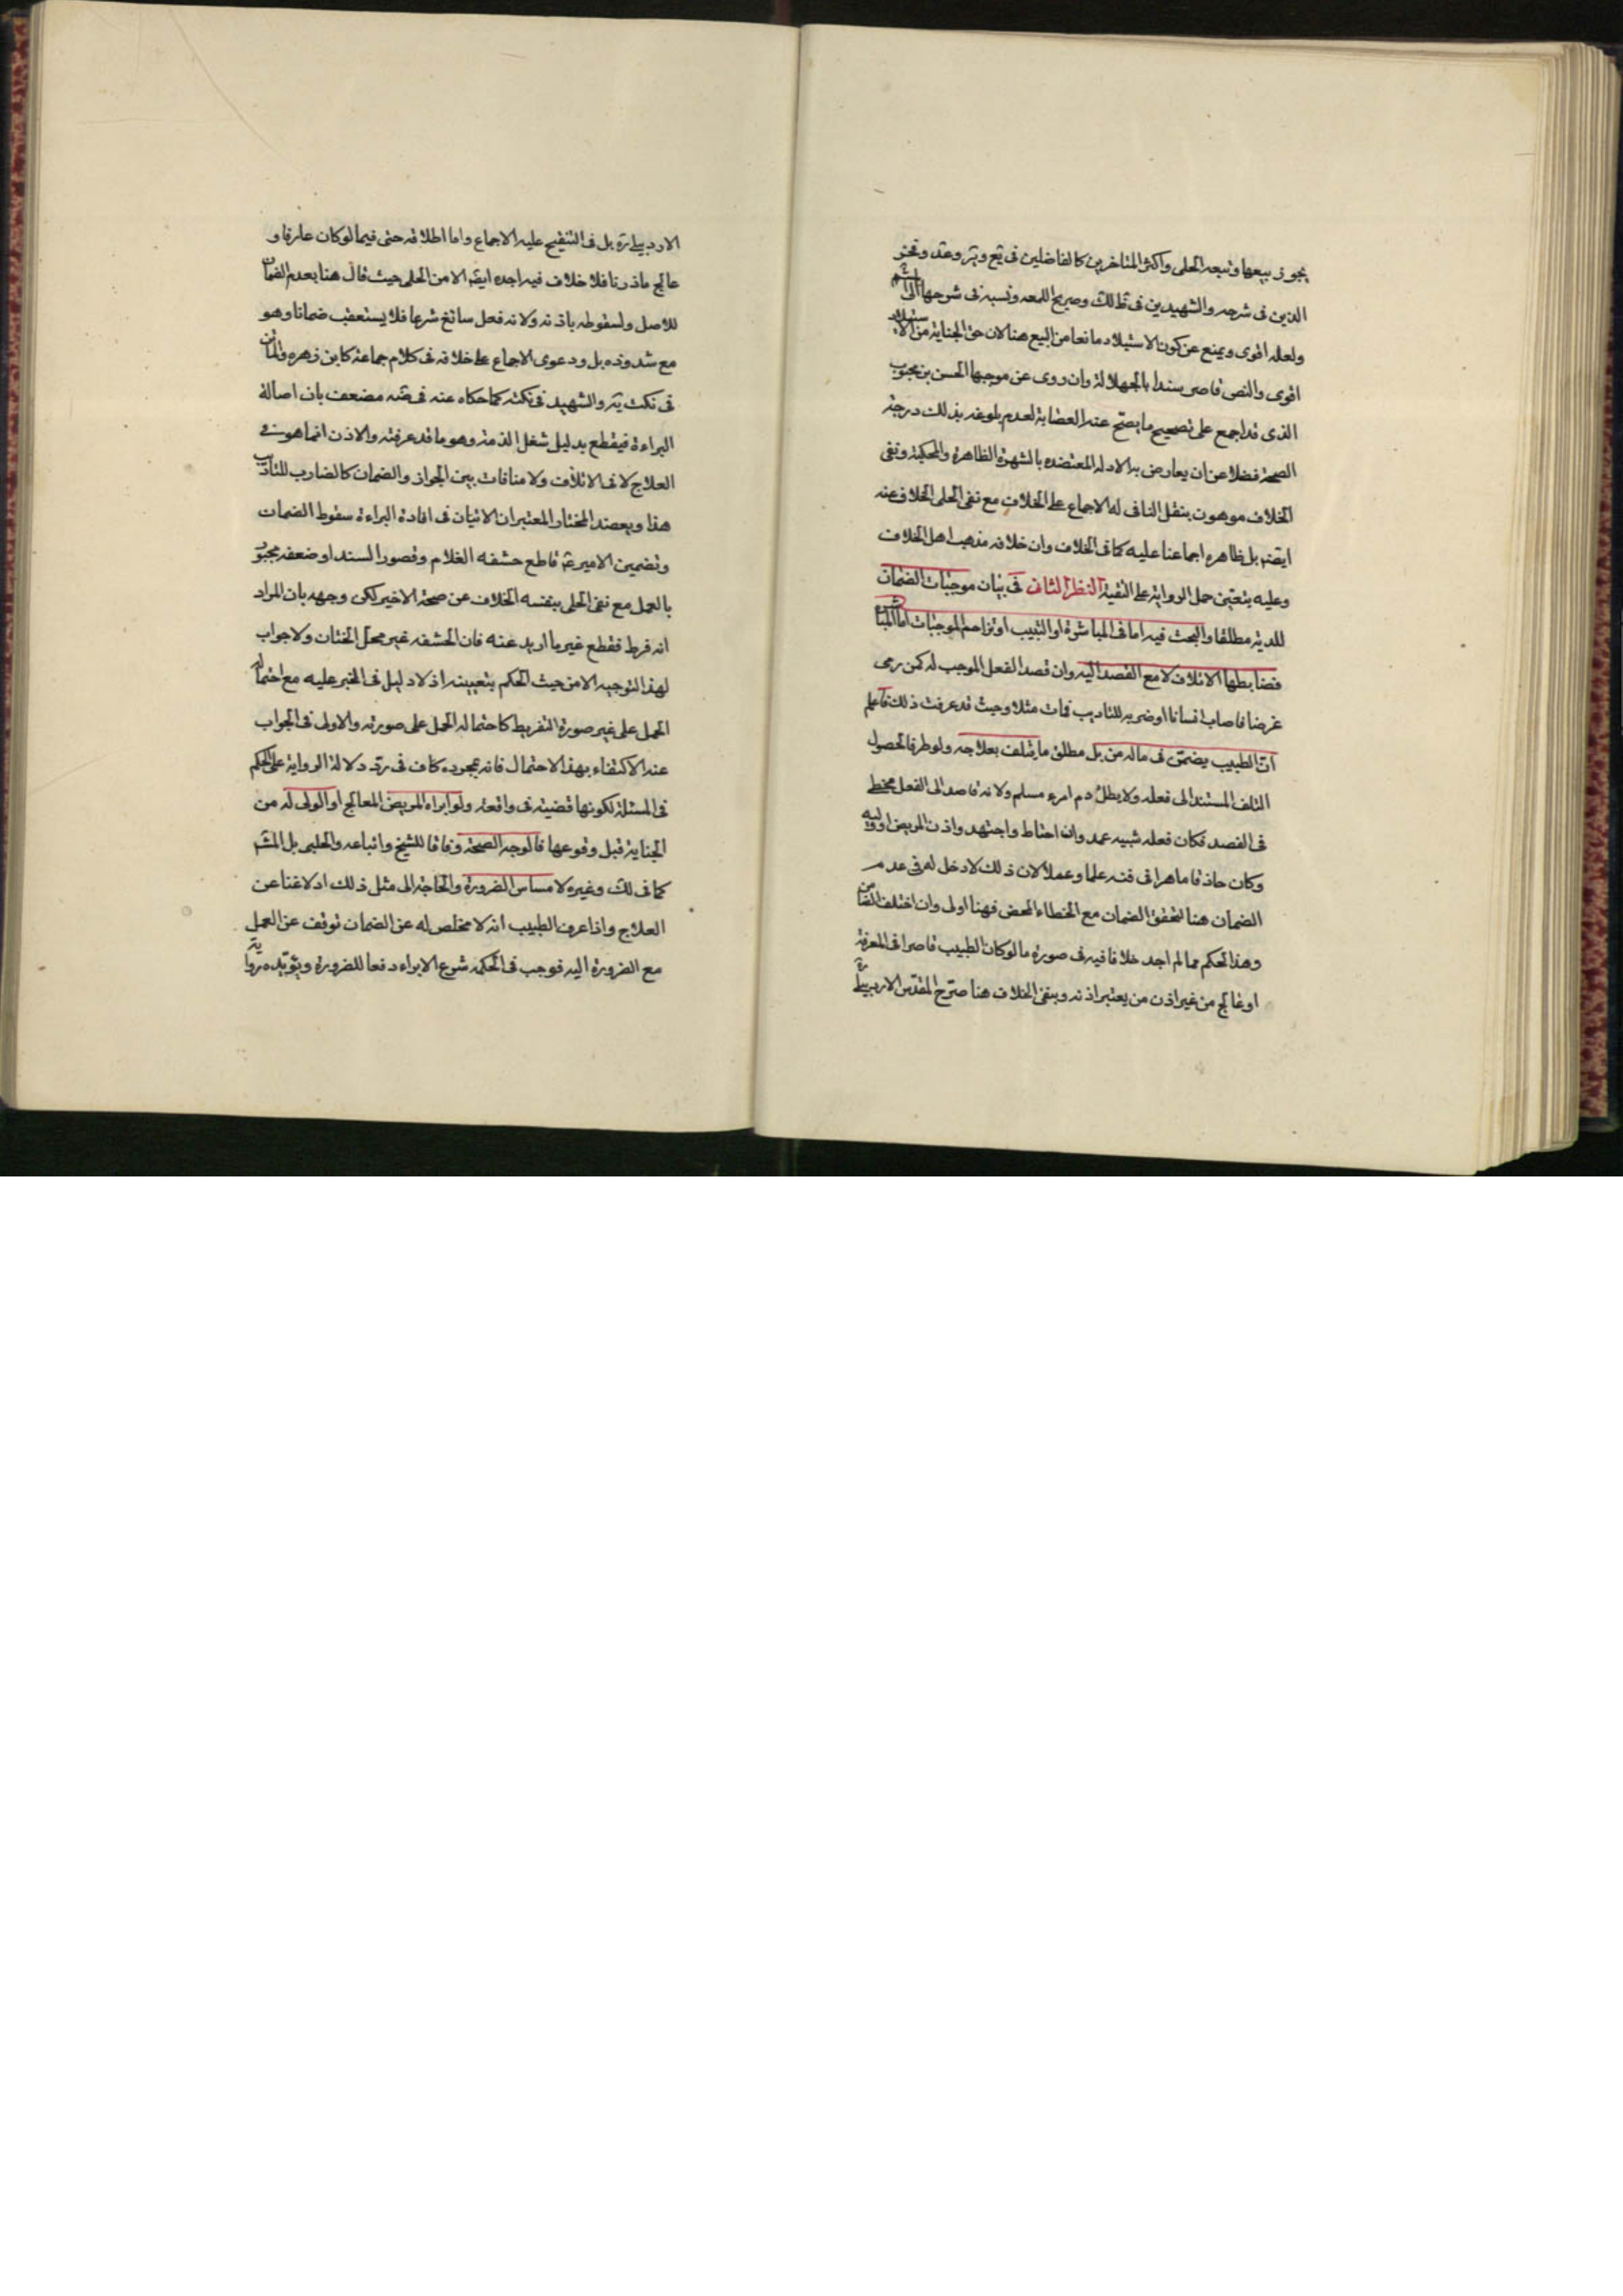 يجوز بيعها وتبعه الحلى واكثر المتاخرين كالفاضلين فى يع وير وعد وفخر
الدين فى شرحه والشهيدين فى لك وصريح اللمعه ونسبه فى شرحها الى
ولعله اقوى ويمنع عن كون الاستيلاد مانعا من البيع هنا لان حق الجناية من الاستيلاد
اقوى والنص قاصر سندا بالجهالة وان روى عن موجبها الحسن بن محبوب
الذى قد اجمع على تصحيح ما يصح عنه العصابة لعدم بلوغه بذلك درجة
الصحة فضلا عن ان يعارض به الادله المعتضده بالشهرة الظاهرة والمحكية ونفى
الخلاف موهون بنقل النافى له الاجماع على الخلاف مع نفى الحلى الخلاف عنه
ايضا بل ظاهره اجماعنا عليه كما فى الخلاف وان خلافه مذهب اهل الخلاف
وعليه يتعين حمل الرواية على التقية النظر الثانى فى بيان موجبات الضمان
للدية مطلقا والبحث فيه اما فى المباشرة او التسبيب او تزاحم الموجبات اما المباشرة
فضابطها الاتلاف لا مع القصد اليه وان قصد الفعل الموجب له كمن رمى
غرضا فاصاب انسانا او ضربه للتاديب فمات مثلا وحيث قد عرفت ذلك فاعلم
ان الطبيب يضمن فى ماله من بل مطلق ما يتلف بعلاجه ولو طرفا لحصول
التلف المستند الى فعله ولا يطل دم امرء مسلم ولانه قاصد الى الفعل مخطئ
فى القصد فكان فعله شبيه عمد وان احتاط واجتهد واذن المريض او وليه
وكان حاذقا ماهرا فى فنه علما وعملا لان ذلك لا دخل له فى عدم
الضمان هنا لتحقق الضمان مع الخطاء المحض فهنا اولى وان اختلف الضامن
وهذا الحكم مما لم اجد خلافا فيه فى صورة ما لو كان الطبيب قاصرا فى المعرفة
او عالج من غير اذن من يعتبر اذنه وبنفى الخلاف هنا صرح المقدس الاردبيلى
الاردبيلى ره بل فى التنقيح عليه الاجماع واما اطلاقه حتى فيما لو كان عارفا و
عالج ماذونا فلا خلاف فيه اجده ايضا الا من الحلى حيث قال هنا بعدم الضمان
للاصل ولسقوطه باذنه ولانه فعل سائغ شرعا فلا يستعقب ضمانا وهو
مع شذوذه بل ودعوى الاجماع على خلافه فى كلام جماعة كابن زهره والماتن
فى نكت يه والشهيد فى نكته كما حكاه عنه فى ضه مضعف بان اصالة
البراءة فيقطع بدليل شغل الذمة وهو ما قد عرفته والاذن انما هو فى
العلاج لا فى الاتلاف ولا منافات بين الجواز والضمان كالضارب للتاديب
هذا ويعضد المختار المعتبران الاتيان فى افادة البراءة سقوط الضمان
وتضمين الامير ع قاطع حشفه الغلام وقصور السند او ضعفه مجبور
بالعمل مع نفى الحلى بنفسه الخلاف عن صحة الاخير لكن وجهه بان المراد
انه فرط فقطع غير ما اريد عنه فان الحشفه غير محل الختان ولا جواب
لهذا التوجيه الا من حيث الحكم بتعيينه اذ لا دليل فى الخبر عليه مع احتماله
الحمل على غير صورة التفريط كاحتماله الحمل على صورته والاولى فى الجواب
عنه الاكتفاء بهذا الاحتمال فانه بمجرده كاف فى رد دلالة الرواية على الحكم
فى المسئلة لكونها قضية فى واقعة ولو ابراه المريض المعالج او الولى له من
الجناية قبل وقوعها فالوجه الصحة وفاقا للشيخ واتباعه والحلبى بل المشهور
كما فى لك وغيره لا مساس الضرورة والحاجة الى مثل ذلك اذ لا غنا عن
العلاج واذا عرف الطبيب انه لا مخلص له عن الضمان توقف عن العمل
مع الضرورة اليه فوجب فى الحكمة شرع الابراء دفعا للضرورة ويؤيده رواية